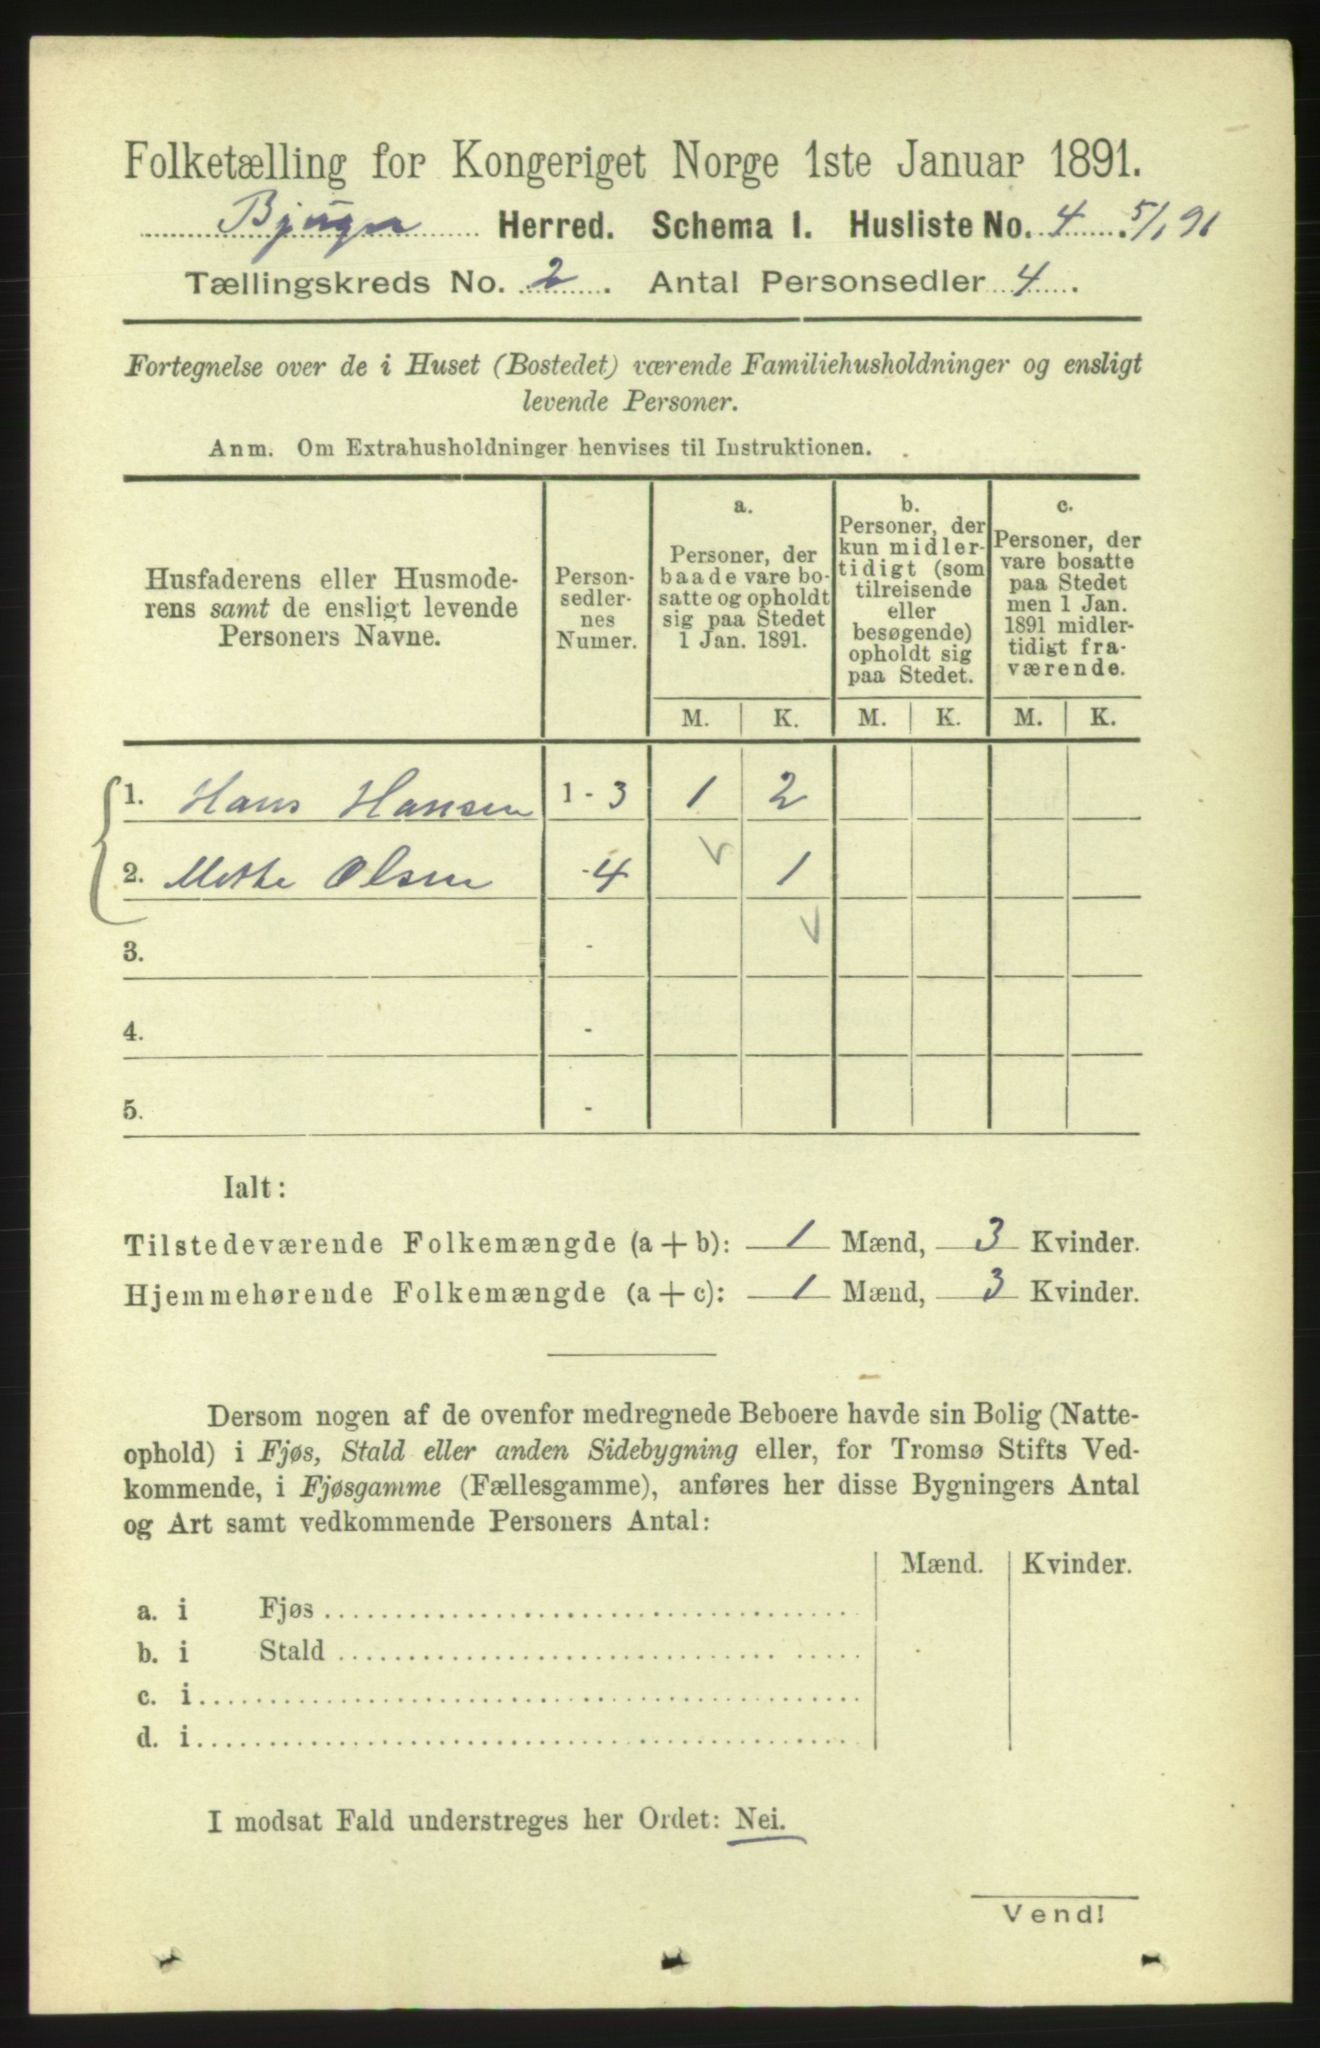 Folketælling for Kongeriget Norge 1ste Januar 1891.
Bjugn Herred. Schema I. Husliste No. 4. 5/1 91
Tællingskreds No. 2. Antal Personsedler 4.
Fortegnelse over de i Huset (Bostedet) værende Familiehusholdninger og ensligt
levende Personer.
Anm. Om Extrahusholdninger henvises til Instruktionen.
Husfaderens eller Husmode-
rens samt de ensligt levende
Personers Navne.
Person-
sedler-
nes
Numer.
a.
Personer, der
baade vare bo-
satte og opholdt
sig paa Stedet
1 Jan. 1891.
b.
Personer, der
kun midler-
tidigt (som
tilreisende
eller
besøgende)
opholdt sig
paa Stedet.
c.
Personer, der
vare bosatte
paa Stedet
men 1 Jan.
1891 midler-
tidigt fra-
værende.
M. K. M. K. M. K.
1. Hans Hansen 1 - 3 1 2
2. Methe Olsen - 4 1
3. -
4. -
5. -
Ialt:
Tilstedeværende Folkemængde (a + b): 1 Mænd, 3 Kvinder.
Hjemmehørende Folkemængde (a + c): 1 Mænd, 3 Kvinder.
Dersom nogen af de ovenfor medregnede Beboere havde sin Bolig (Natte-
ophold) i Fjøs, Stald eller anden Sidebygning eller, for Tromsø Stifts Ved-
kommende, i Fjøsgamme (Fællesgamme), anføres her disse Bygningers Antal
og Art samt vedkommende Personers Antal:
Mænd. Kvinder.
a. i Fjøs
b. i Stald
c. i
d. i
I modsat Fald understreges her Ordet: Nei.
Vend!